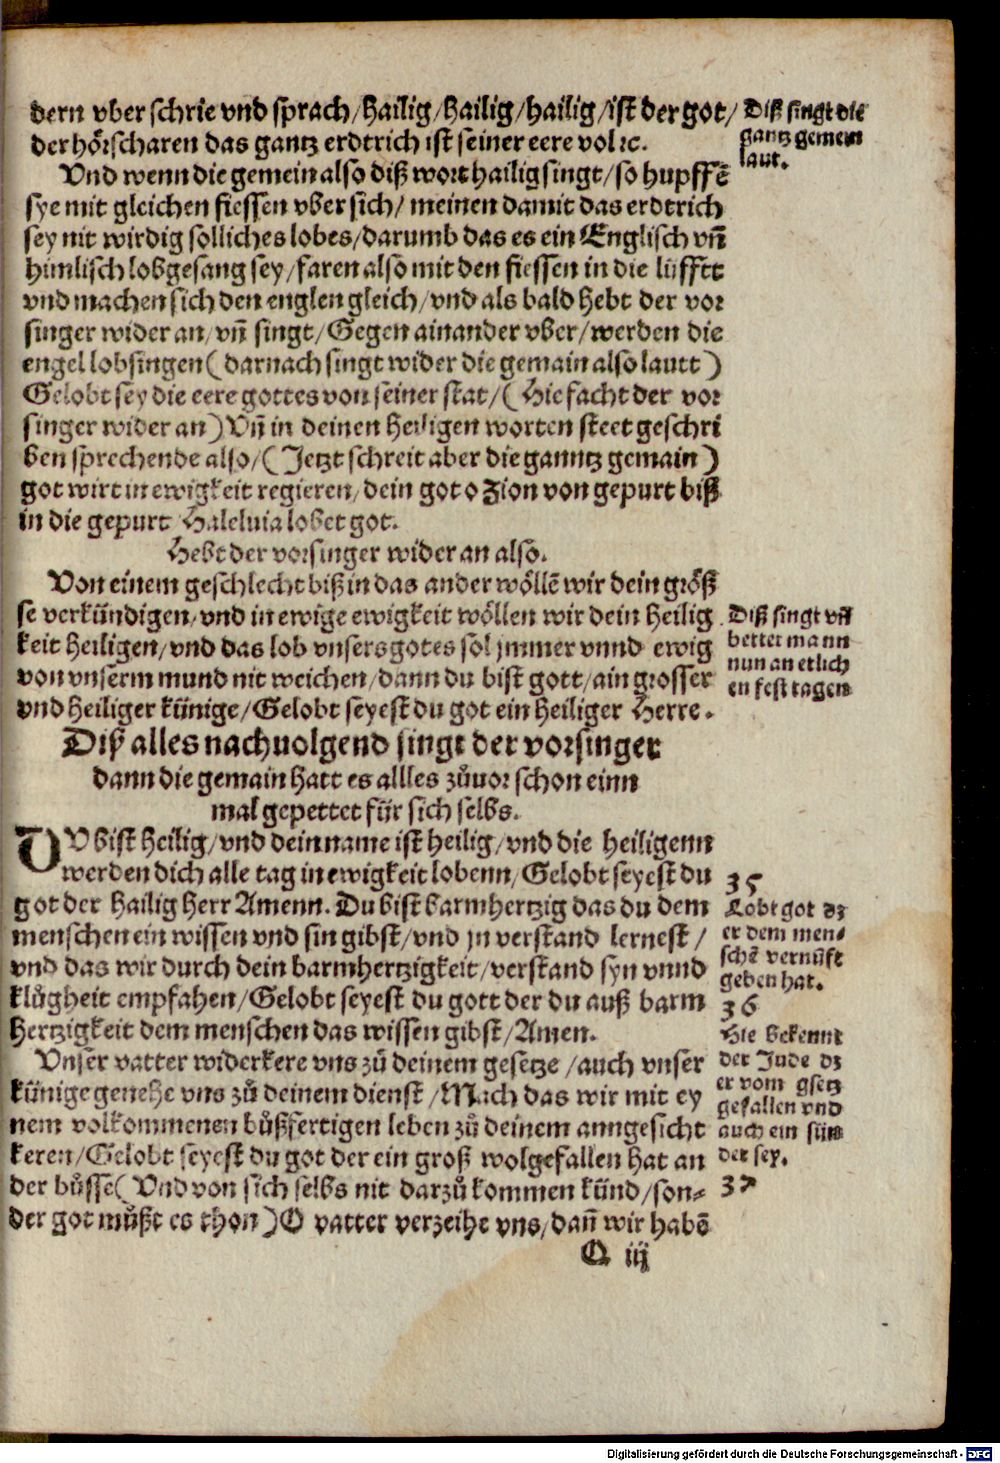 dern vber schrie vnd sprach/Hailig/Hailig/hailig/ist der got/
der hörscharen das gantz erdtrich ist seiner eere vol ⁊c.
Diß singt die
gantz gemein
laut.
Vnd wenn die gemein also diß wort hailig singt/so hupffē
sye mit gleichen fiessen vber sich/ meinen damit das erdtrich
sey nit wirdig solliches lobes/darumb das es ein Englisch vñ
himlisch lobgesang sey/faren also mit den fiessen in die lüfftt
vnd machen sich den englen gleich/vnd als bald hebt der vor
singer wider an/vñ singt/Gegen ainander vber/werden die
engel lobsingen(darnach singt wider die gemain also lautt)
Gelobt sey die eere gottes von seiner stat/(Hie facht der vor
singer wider an)Vñ in deinen heiligen worten steet geschri
ben sprechende also/(Jetzt schreit aber die ganntz gemain)
got wirt in ewigkeit regieren/dein got o Zion von gepurt biß
in die gepurt Haleluia lobet got.
Hebt der vorsinger wider an also.
Von einem geschlecht biß in das ander wöllē wir dein größ
se verkündigen/vnd in ewige ewigkeit wöllen wir dein heilig
keit heiligen/vnd das lob vnsers gotes sol jmmer vnnd ewig
von vnserm mund nit weichen/dann du bist gott/ain grosser
vnd heiliger künige/Gelobt seyest du got ein heiliger Herre.
Diß singt vñ
bettet mann
nun an etlich
en fest tagen
Diß alles nachuolgend singt der vorsinger
dann die gemain hatt es allles zůuor schon einn
mal gepettet für sich selbs.
DV bist heilig/vnd dein name ist heilig/vnd die heiligenn
werden dich alle tag in ewigkeit lobenn/Gelobt seyest du
got der hailig Herr Amenn. Du bist barmhertzig das du dem
menschen ein wissen vnd sin gibst/vnd jn verstand lernest/
vnd das wir durch dein barmhertzigkeit/verstand syn vnnd
klůgheit empfahen/Gelobt seyest du gott der du auß barm
hertzigkeit dem menschen das wissen gibst/Amen.
35
Lobt got dz
er dem men-
schē vernüft
geben hat.
36
Vnser vatter widerkere vns zů deinem gesetze/auch vnser
künige genehe vns zů deinem dienst/Mach das wir mit ey
nem volkommenen bůßfertigen leben zů deinem anngesicht
keren/Gelobt seyest du got der ein groß wolgefallen hat an
der bůsse(Vnd von sich selbs nit darzů kommen künd/son-
der got můßt es thon)O vatter verzeihe vns/dañ wir habē
Hie bekennt
der Jude dz
er vom gsetz
gefallen vnd
auch ein sün
der sey.
37
O iij
Digitalisierung gefördert durch die Deutsche Forschungsgemeinschaft - DFG